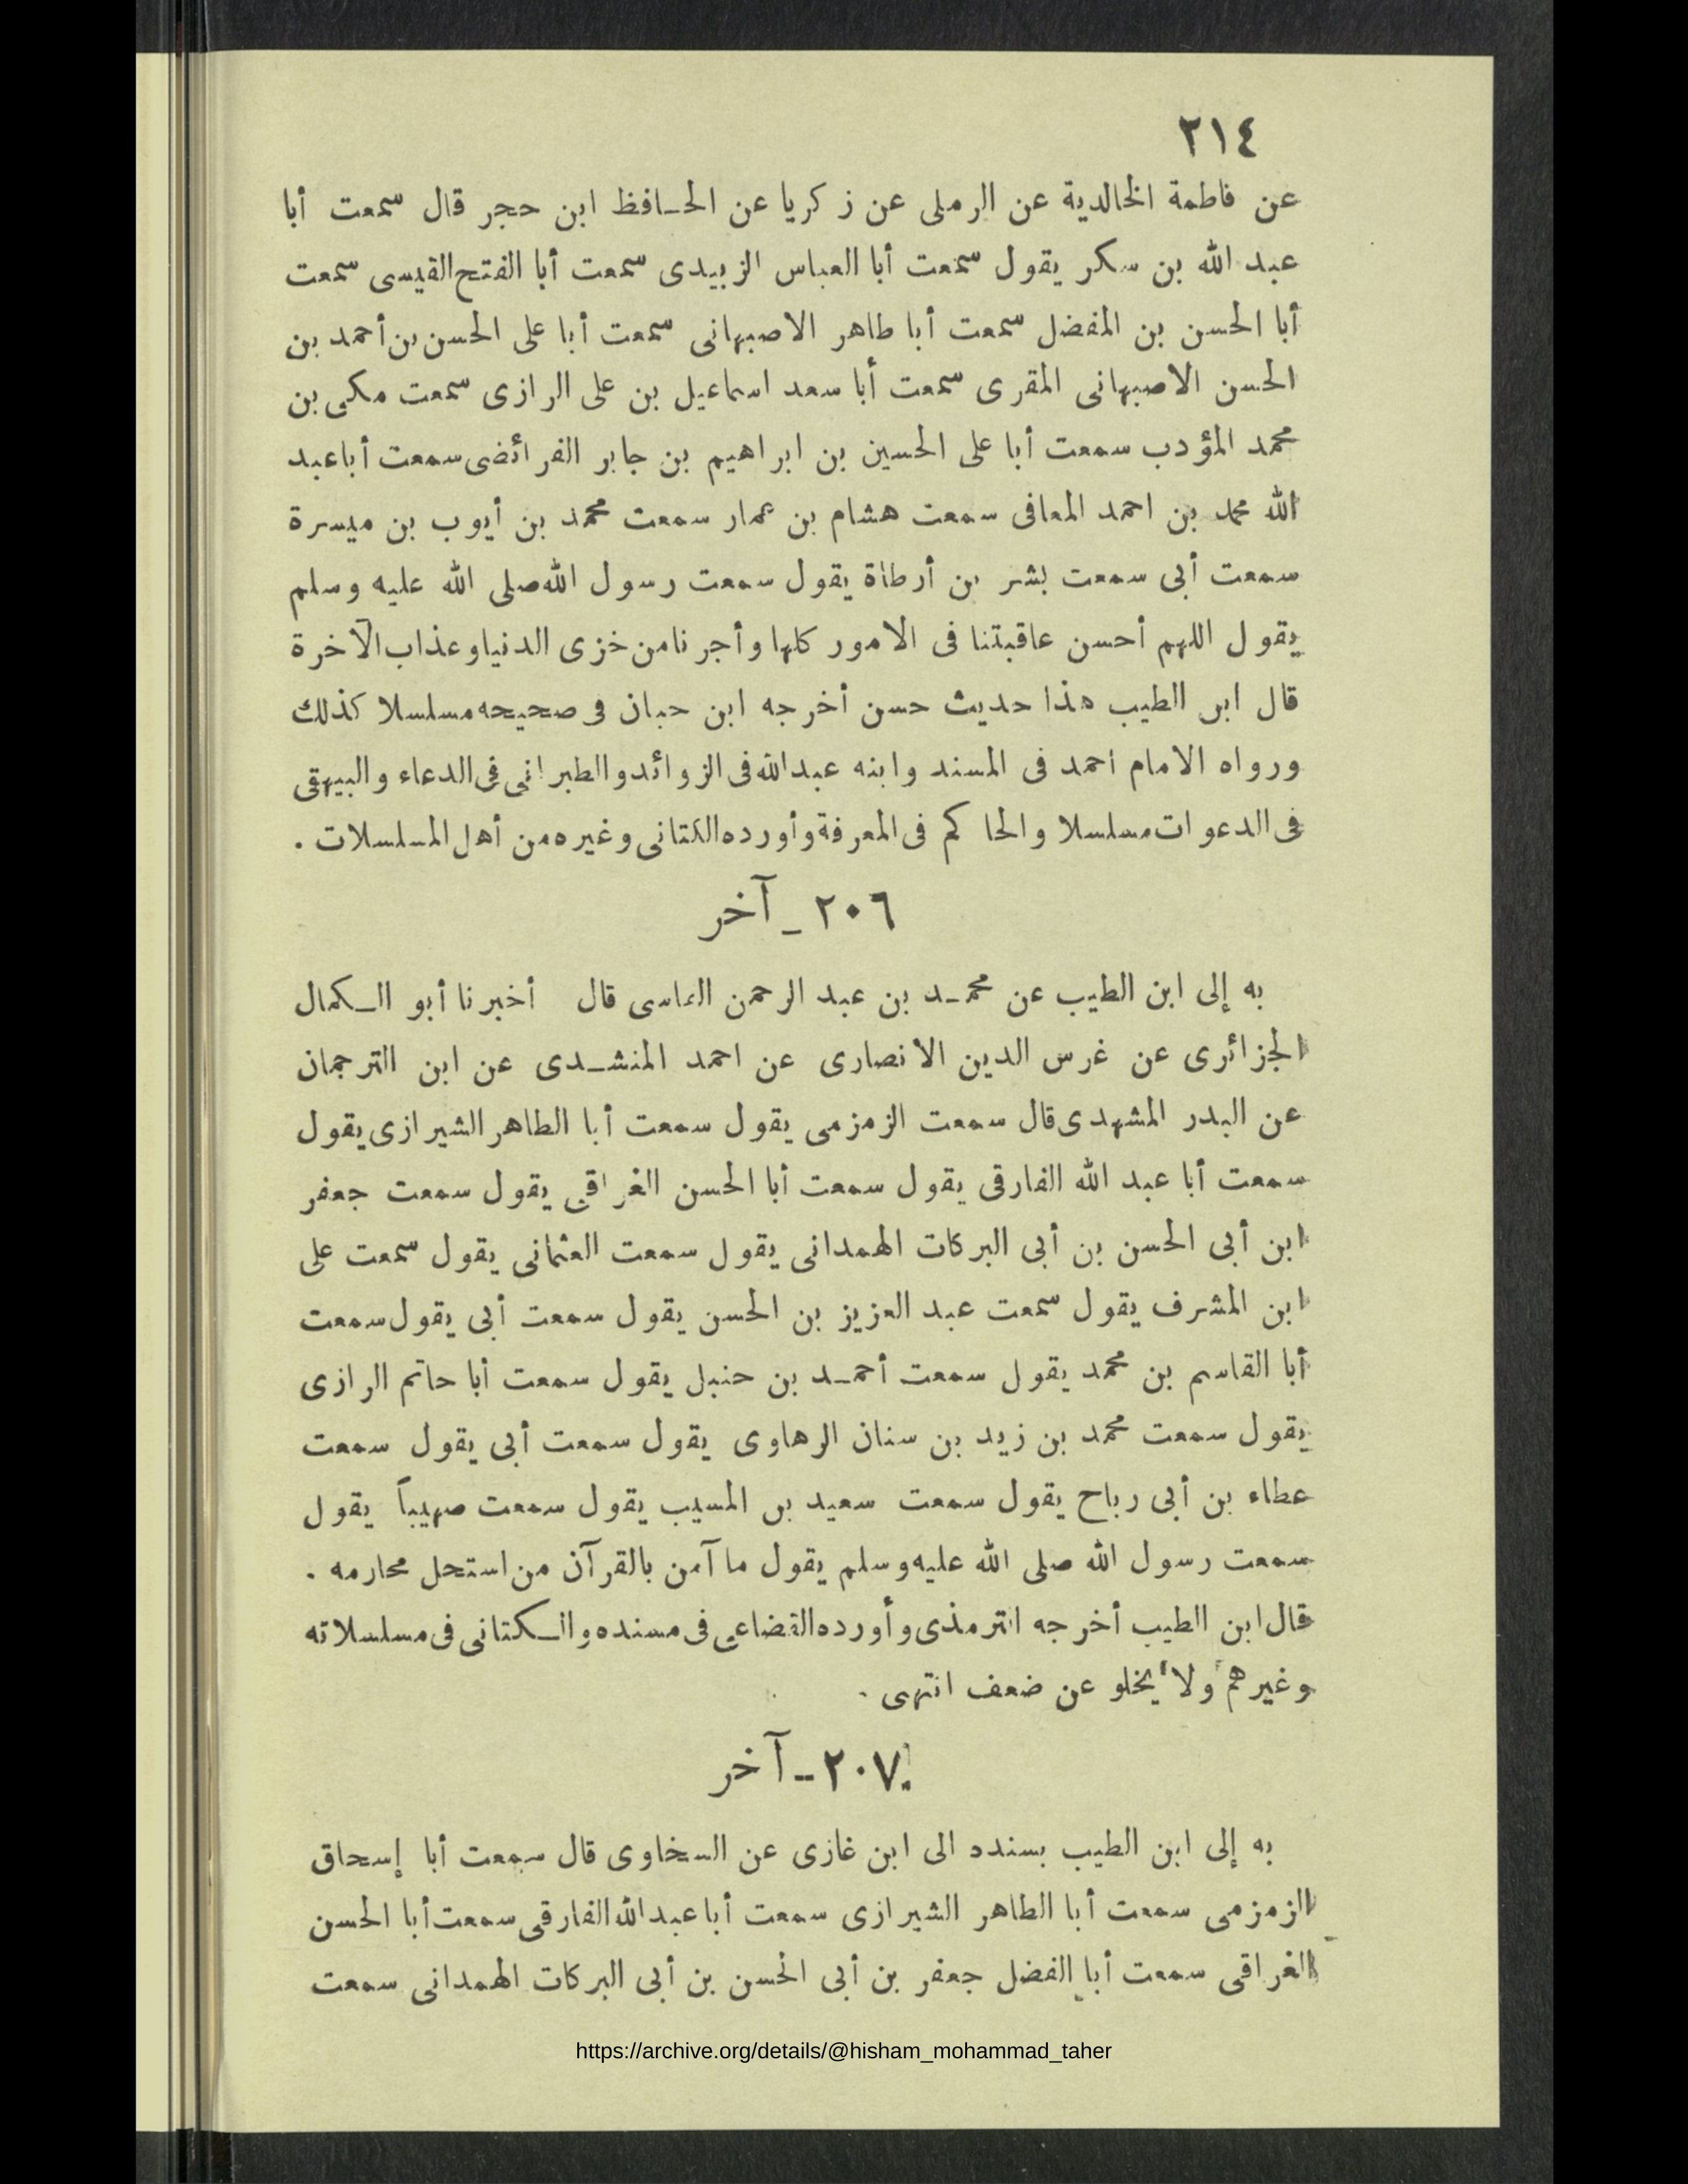 ٢١٤
عن فاطمة الخالدية عن الرملى عن زكريا عن الحافظ ابن حجر قال سمعت أبا
عبد الله بن سكر يقول سمعت أبا العباس الزبيدى سمعت أبا الفتح القيسى سمعت
أبا الحسن بن المفضل سمعت أبا طاهر الاصبهانى سمعت أبا على الحسن بن أحمد بن
الحسن الاصبهانى المقرى سمعت أبا سعد اسماعيل بن على الرازى سمعت مكى بن
محمد المؤدب سمعت أبا على الحسين بن ابراهيم بن جابر الفرائضى سمعت أبا عبد
الله محمد بن احمد المعافى سمعت هشام بن عمار سمعت محمد بن أيوب بن ميسرة
سمعت أبى سمعت بشر بن أرطاة يقول سمعت رسول الله صلى الله عليه وسلم
يقول اللهم أحسن عاقبتنا فى الامور كلها وأجرنا من خزى الدنيا وعذاب الآخرة
قال ابن الطيب هذا حديث حسن أخرجه ابن حبان فى صحيحه مسلسلا كذلك
ورواه الامام احمد فى المسند وابنه عبد الله فى الزوائد والطبرانى فى الدعاء والبيهقى
فى الدعوات مسلسلا والحاكم فى المعرفة وأورده الكتانى وغيره من أهل المسلسلات .
٢٠٦ ـ آخر
به إلى ابن الطيب عن محمد بن عبد الرحمن الفاسى قال أخبرنا أبو الكمال
الجزائرى عن غرس الدين الانصارى عن احمد المنشدى عن ابن الترجمان
عن البدر المشهدى قال سمعت الزمزمى يقول سمعت أبا الطاهر الشيرازى يقول
سمعت أبا عبد الله الفارقى يقول سمعت أبا الحسن الغراقى يقول سمعت جعفر
ابن أبى الحسن بن أبى البركات الهمدانى يقول سمعت العثمانى يقول سمعت على
ابن المشرف يقول سمعت عبد العزيز بن الحسن يقول سمعت أبى يقول سمعت
أبا القاسم بن محمد يقول سمعت أحمد بن حنبل يقول سمعت أبا حاتم الرازى
يقول سمعت محمد بن زيد بن سنان الرهاوى يقول سمعت أبى يقول سمعت
عطاء بن أبى رباح يقول سمعت سعيد بن المسيب يقول سمعت صهيباً يقول
سمعت رسول الله صلى الله عليه وسلم يقول ما آمن بالقرآن من استحل محارمه .
قال ابن الطيب أخرجه الترمذى وأورده القضاعى فى مسنده والكتانى فى مسلسلاته
وغيرهم ولا يخلو عن ضعف انتهى .
٢٠٧ ـ آخر
به إلى ابن الطيب بسنده الى ابن غازى عن السخاوى قال سمعت أبا إسحاق
الزمزمى سمعت أبا الطاهر الشيرازى سمعت أبا عبد الله الفارقى سمعت أبا الحسن
الغراقى سمعت أبا الفضل جعفر بن أبى الحسن بن أبى البركات الهمدانى سمعت
https://archive.org/details/@hisham_mohammad_taher